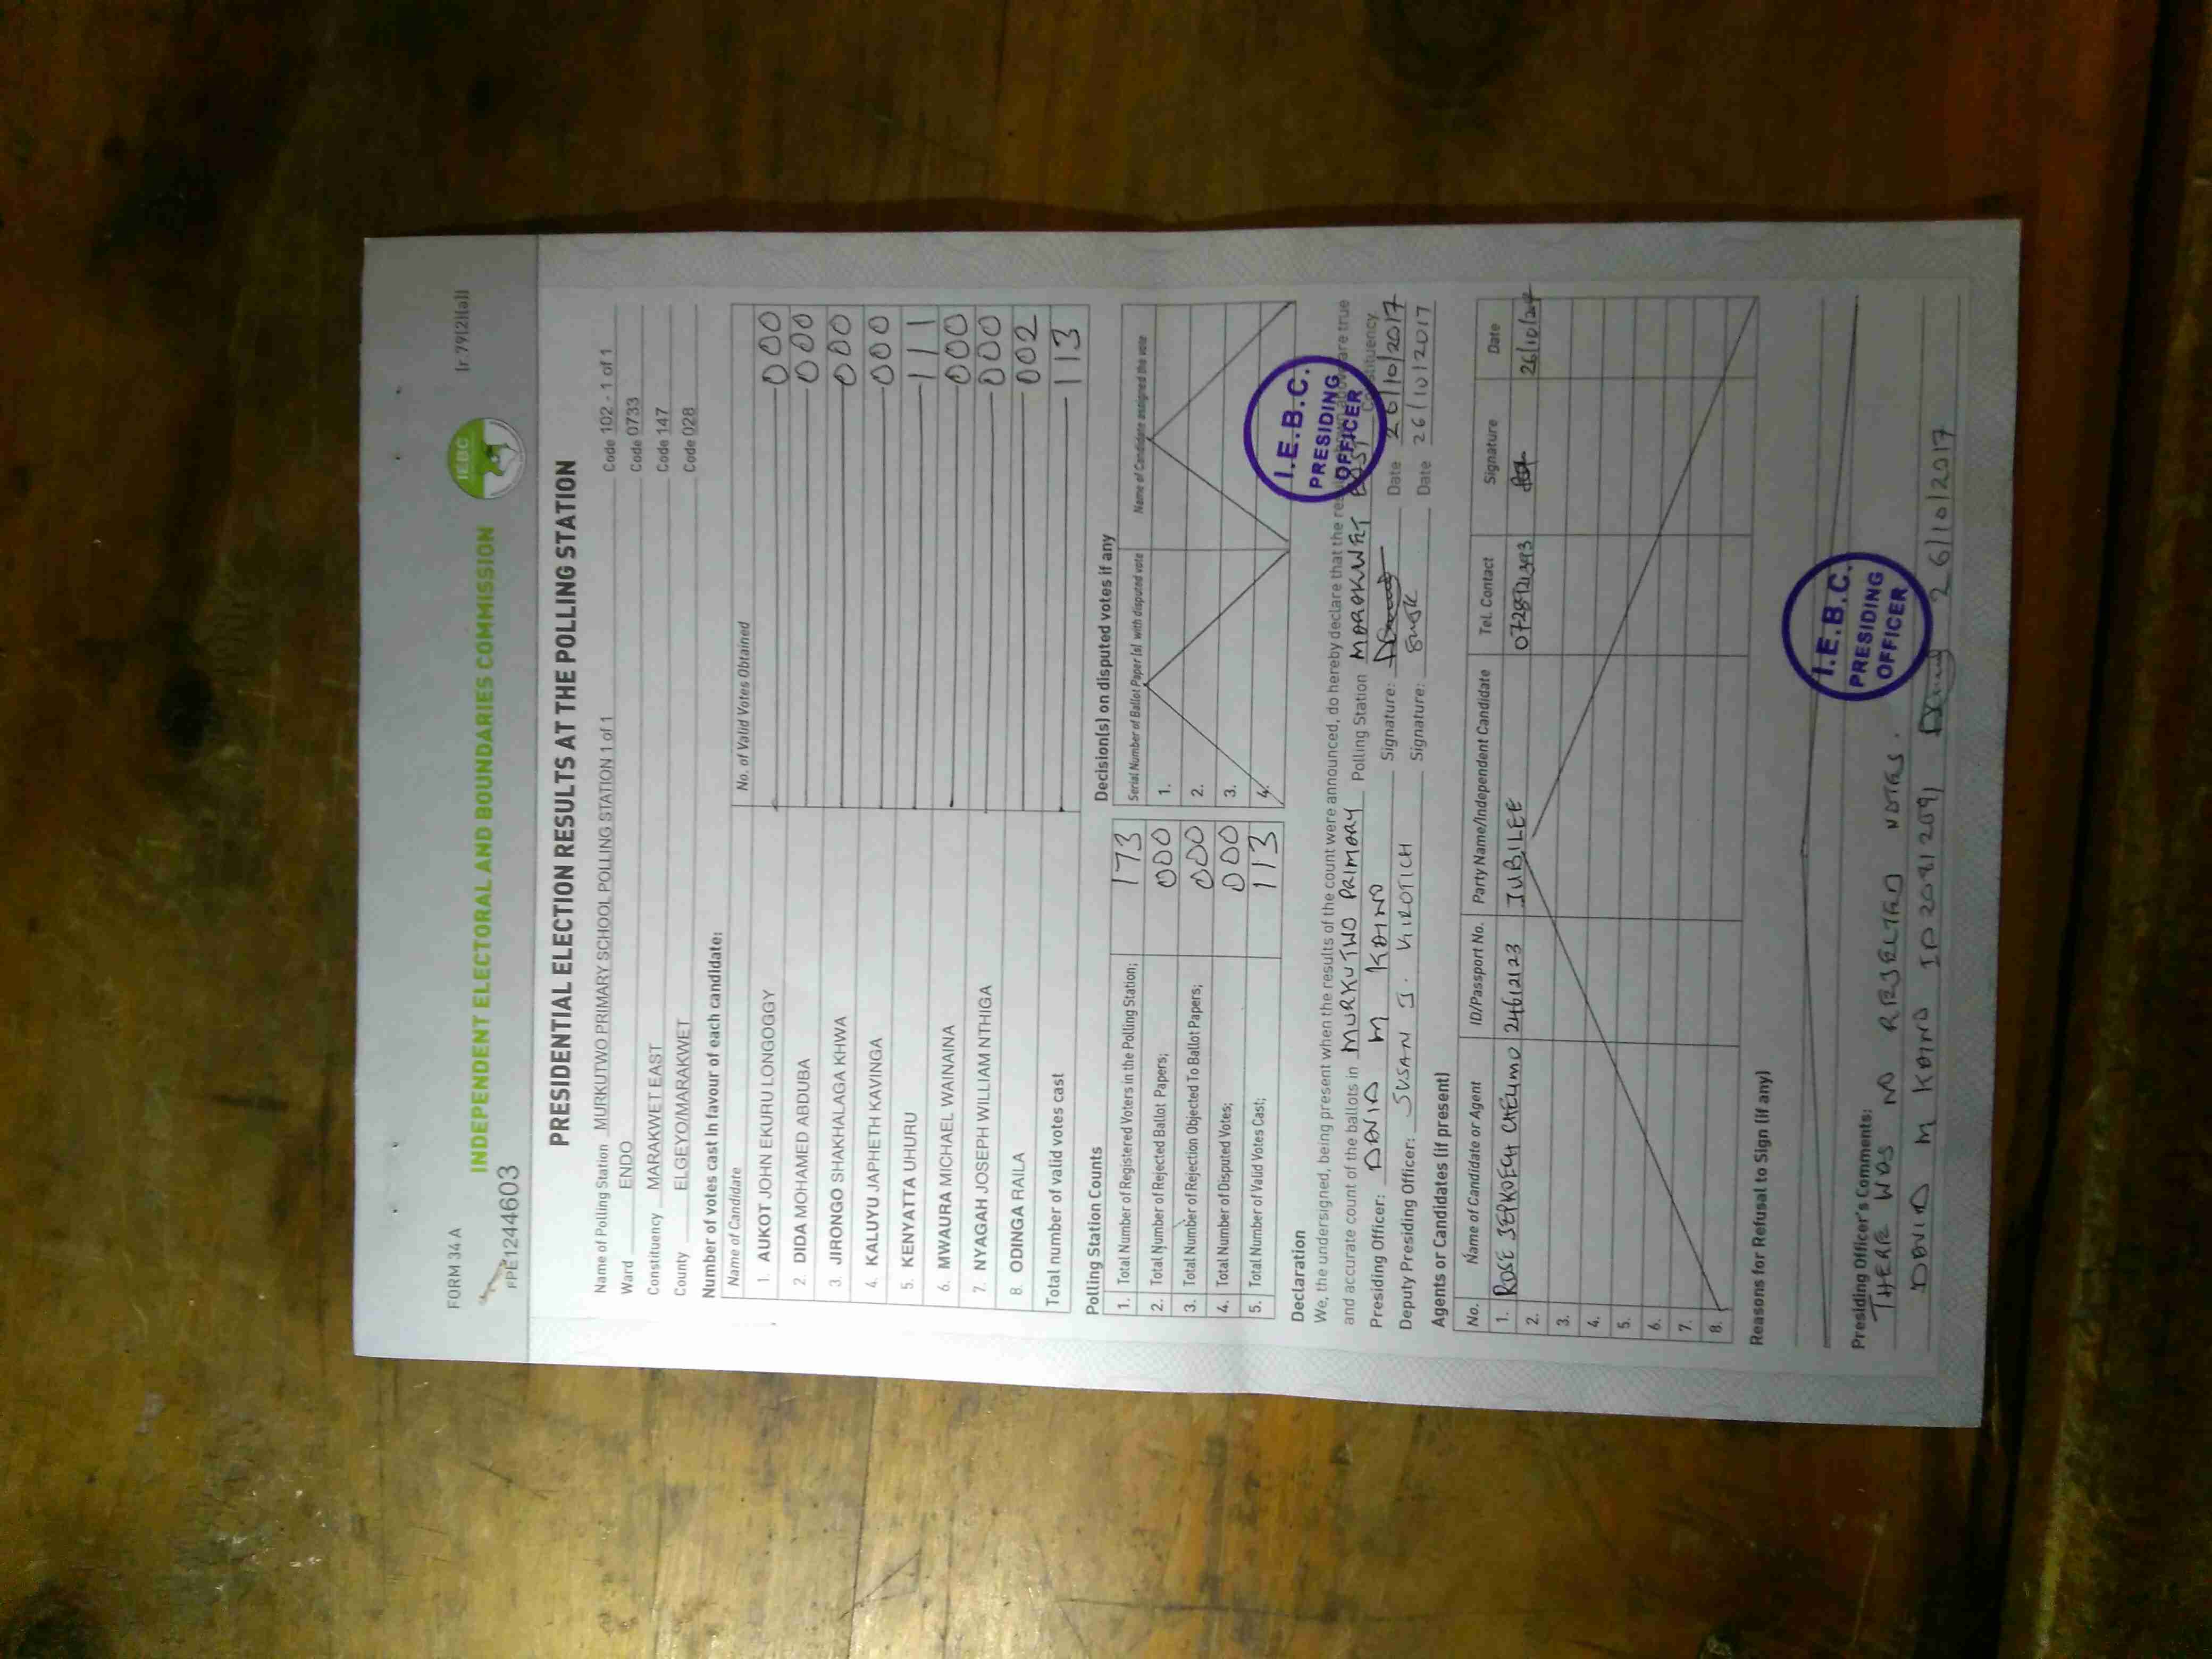 FORM 34 A
r.79(2)(a)
IEBC
INDEPENDENT ELECTORAL AND BOUNDARIES COMMISSION
FPE1244603
PRESIDENTIAL ELECTION RESULTS AT THE POLLING STATION
Name of Polling Station MURKUTWO PRIMARY SCHOOL POLLING STATION 1 of 1 Code 102 - 1 of 1
Ward ENDO Code 0733
Constituency MARAKWET EAST Code 147
County ELGEYO/MARAKWET Code 028
Number of votes cast in favour of each candidate:
Name of Candidate No. of Valid Votes Obtained
1. AUKOT JOHN EKURU LONGOGGY 000
2. DIDA MOHAMED ABDUBA 000
3. JIRONGO SHAKHALAGA KHWA 000
4. KALUYU JAPHETH KAVINGA 000
5. KENYATTA UHURU 111
6. MWAURA MICHAEL WAINAINA 000
7. NYAGAH JOSEPH WILLIAM NTHIGA 000
8. ODINGA RAILA 002
Total number of valid votes cast 113
Polling Station Counts
1. Total Number of Registered Voters in the Polling Station; 173
2. Total Number of Rejected Ballot Papers; 000
3. Total Number of Rejection Objected To Ballot Papers; 000
4. Total Number of Disputed Votes; 000
5. Total Number of Valid Votes Cast; 113
Decision(s) on disputed votes if any
Serial Number of Ballot Paper(s) with disputed vote Name of Candidate assigned the vote
1.
2.
3.
4.
Declaration
We, the undersigned, being present when the results of the count were announced, do hereby declare that the results shown above are true
and accurate count of the ballots in MURKUTWO PRIMARY Polling Station MARAKWET EAST Constituency
Presiding Officer: DAVID M KAINO Signature: Date 26/10/2017
Deputy Presiding Officer: SUSAN J. KIROTICH Signature: Date 26/10/2017
I.E.B.C.
PRESIDING
OFFICER
Agents or Candidates (if present)
No. Name of Candidate or Agent ID/Passport No. Party Name/Independent Candidate Tel. Contact Signature Date
1. ROSE JEPKOECH CHELIMO 24612123 JUBILEE
2.
3.
4.
5.
6.
7.
8.
Reasons for Refusal to Sign (if any)
Presiding Officer's Comments:
THERE WAS NO REJECTED NOTES.
DAVID M KAINO ID 20912091 26/10/2017
I.E.B.C.
PRESIDING
OFFICER